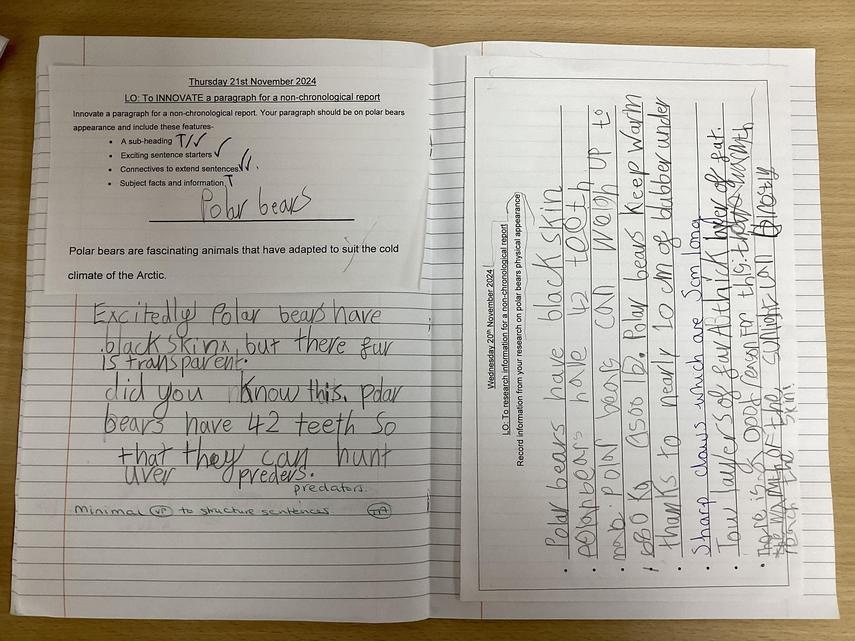 Thursday 21st November 2024
LO: To INNOVATE a paragraph for a non-chronological report
Innovate a paragraph for a non-chronological report. Your paragraph should be on polar bears
appearance and include these features-
• A sub-heading T/✓✓
• Exciting sentence starters ✓
• Connectives to extend sentences ✓✓.
• Subject facts and information T
Polar bears
Polar bears are fascinating animals that have adapted to suit the cold
climate of the Arctic.
Excitedly Polar bears have
black skin, but there fur
is transparent.
did you know this. polar
bears have 42 teeth so
that they can hunt
uver preders.
predators.
Minimal VP to structure sentences. TA
Wednesday 20th November 2024
LO: To research information for a non-chronological report
Record information from your research on polar bears physical appearance
• Polar bears have black skin
• Polar bears have 42 tooth
• polar bears can weigh up to
680 Kg 1500 lb. Polar bears Keep warm
thanks to nearly 10 cm of blubber under
• Sharp claws which are 5cm long
• Tow layers of fur A thick layer of fat.
• There is a good reason for this.
the sunlight can
reach the skin.